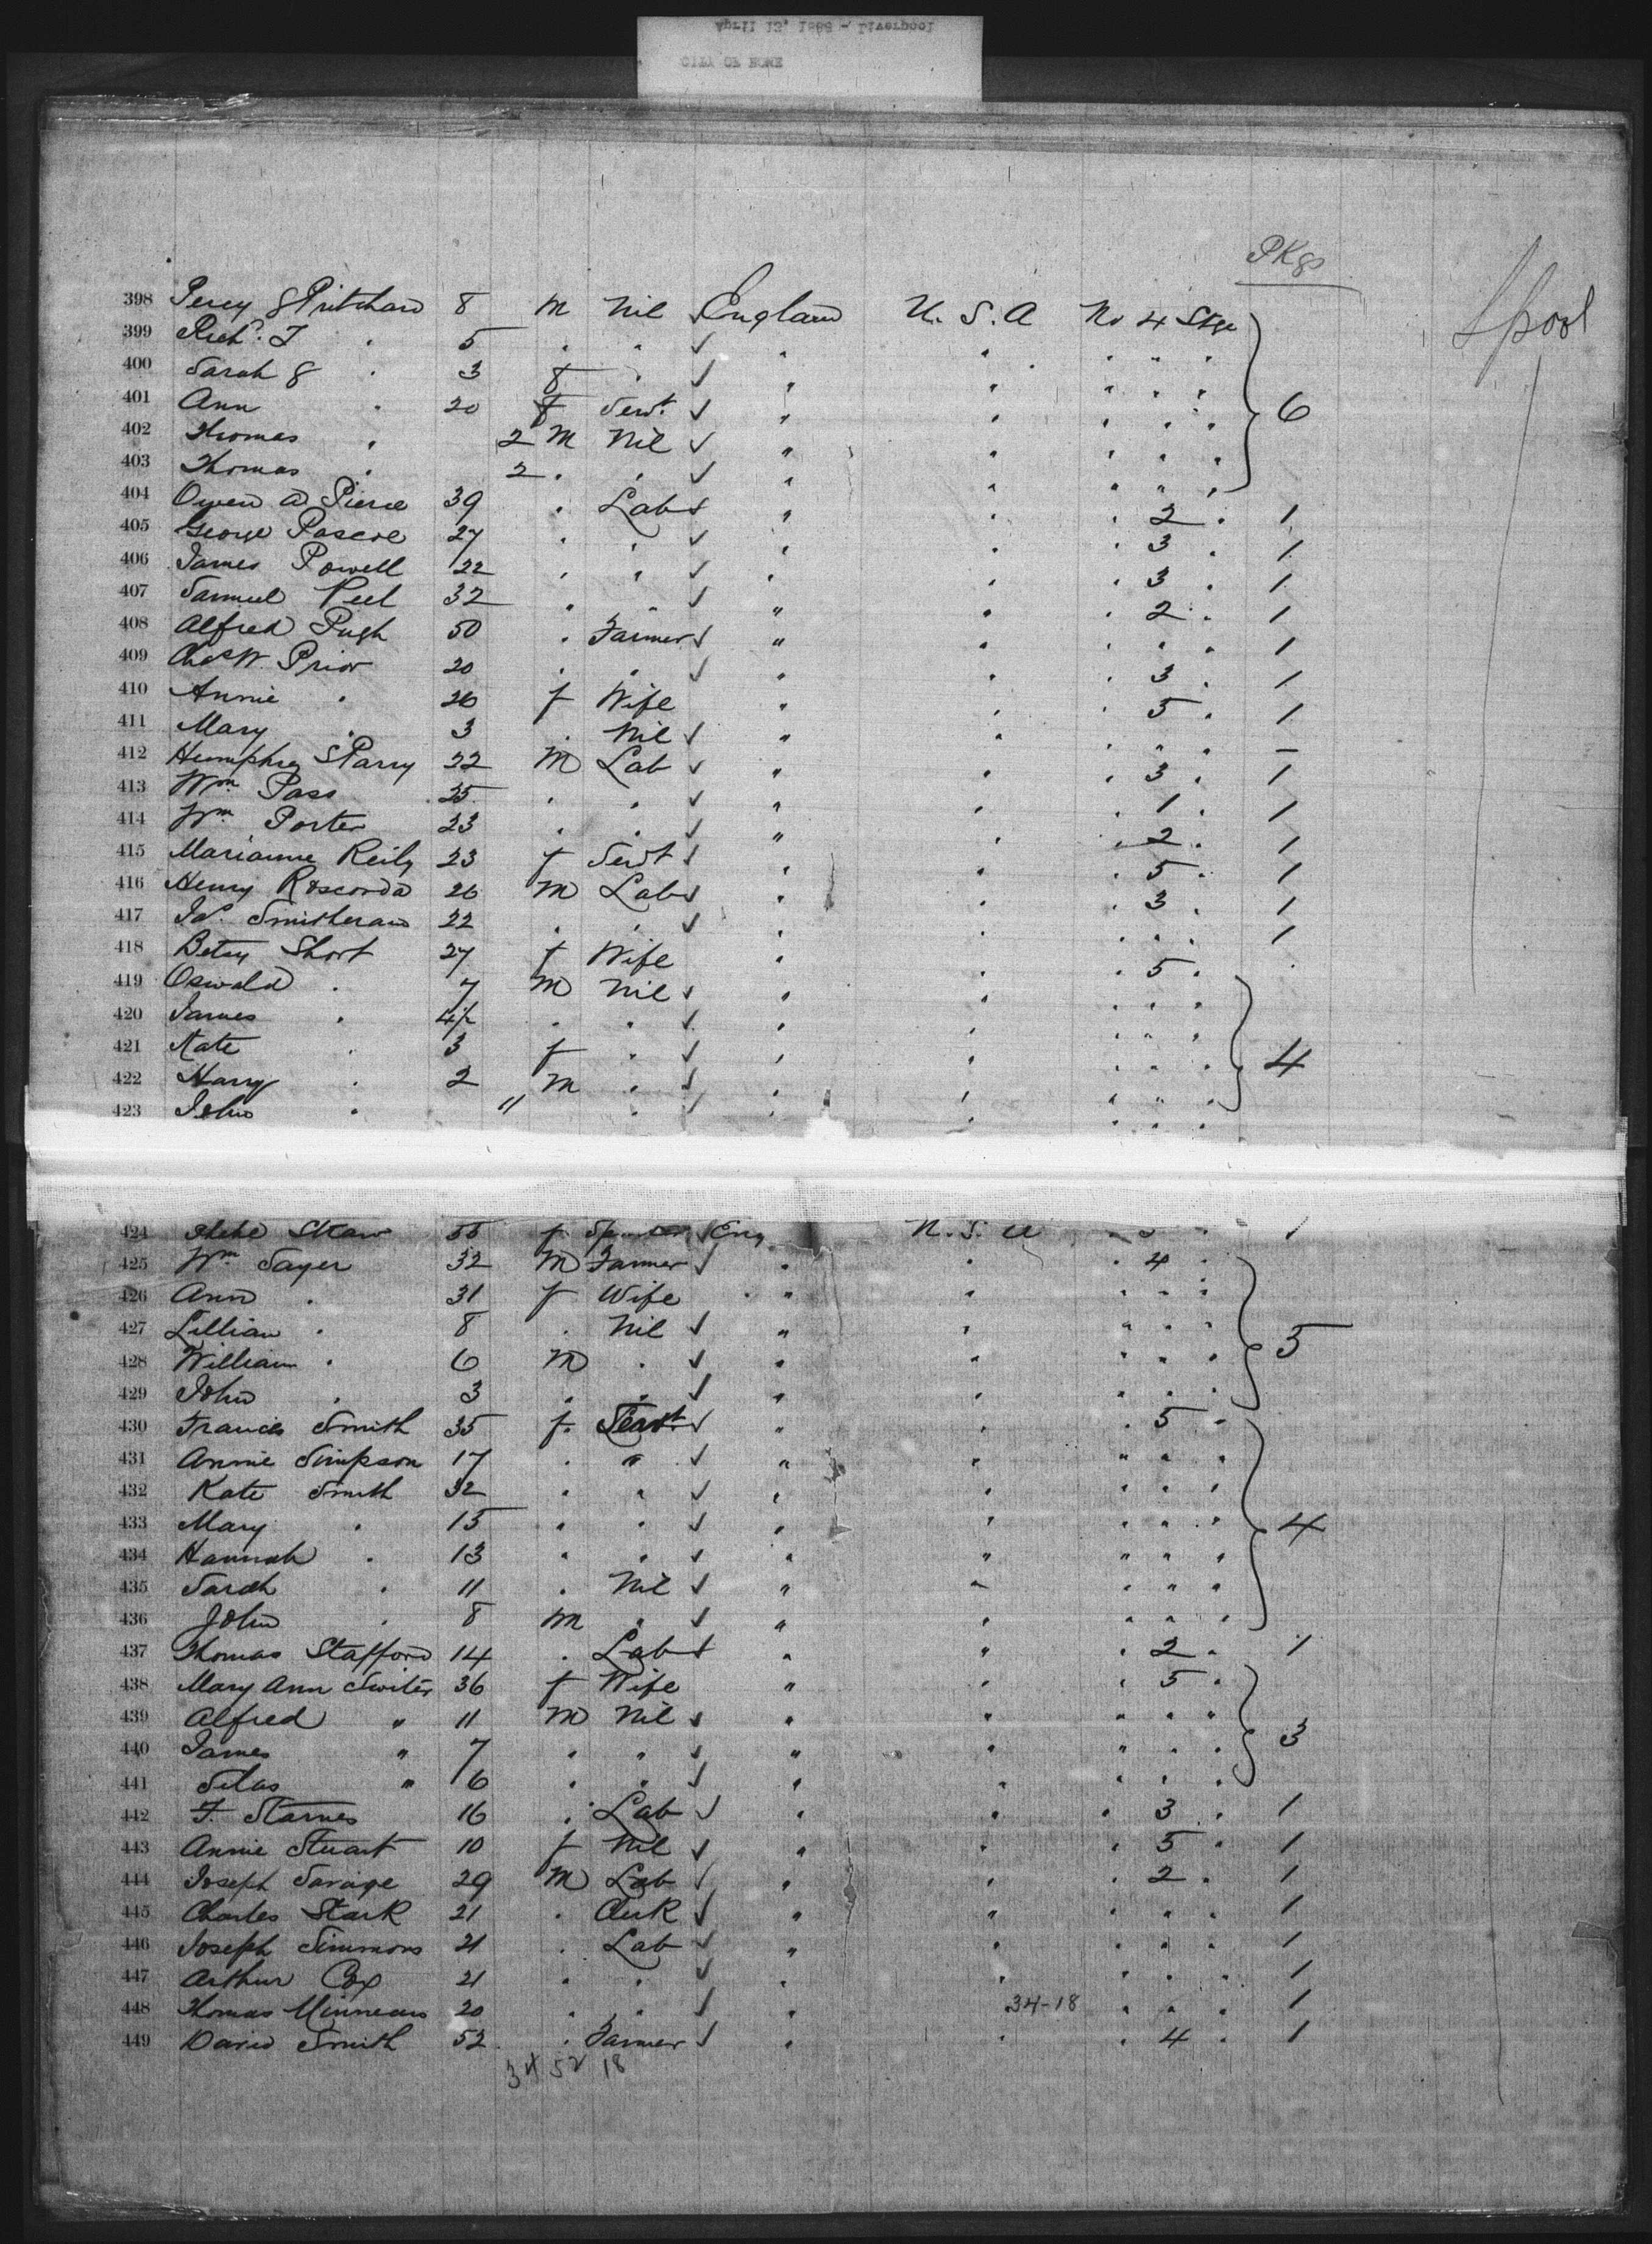 April 13, 1888 - Liverpool
CITY OF ROME
PKgs
Lpool
398 Percy E Pritchard 8 M Nil ✓ England U. S. A No 4 Stge
399 Richd. T . 5 . . ✓ . . . . .
400 Sarah E . 3 f . ✓ . . . . .
401 Ann . 20 f Servt. ✓ . . . . . 6
402 Thomas . 2 M Nil ✓ " . . . .
403 Thomas . 2 . . ✓ . . . . .
404 Owen D Pierce 39 . Lab ✓ . . . 2 . 1
405 George Pascoe 27 . . ✓ . . . 3 . 1
406 James Powell 22 . . ✓ . . . 3 . 1
407 Samuel Peel 32 . . ✓ " . . 2 . 1
408 Alfred Pugh 50 . Farmer ✓ " . . . . 1
409 Chas W. Prior 20 . . ✓ . . . 3 . 1
410 Annie . 26 f Wife . . . 5 . 1
411 Mary . 3 . Nil ✓ " . . . . –
412 Humphrey S Parry 22 M Lab ✓ " . . 3 . 1
413 Wm Pass 25 . . ✓ . . . 1 . 1
414 Wm Porter 23 . . ✓ " . . 2 . 1
415 Marianne Reily 23 f Servt ✓ . . . 5 . 1
416 Henry Rosconda 26 M Lab ✓ . . . 3 . 1
417 Smitheram 22 . . ✓ . . . . . 1
418 Betsy Short 27 f Wife . . . 5 .
419 Oswald . 7 M Nil ✓ . . . . .
420 James . . . ✓ . . . . .
421 Kate . 3 f . ✓ . . . . . 4
422 Harry . 2 M . ✓ . . . . .
423 John . " . ✓ . . . . .
424 Shaw 55 f ✓ Eng U. S. A . . 1
425 Wm Sayer 32 M Farmer ✓ . . . 4 .
426 Ann . 31 f Wife . . . . .
427 Lillian . 8 . Nil ✓ " . . . . 5
428 William . 6 M . ✓ . . . . .
429 John . 3 . . ✓ . . . . .
430 Frances Smith 35 f. Servt ✓ . . . 5 .
431 Annie Simpson 17 . " ✓ . . . . .
432 Kate Smith 32 . . ✓ . . . . .
433 Mary . 15 . . ✓ . . . . . 4
434 Hannah . 13 . . ✓ . . . . .
435 Sarah . 11 . Nil ✓ " . . . .
436 John . 8 M . ✓ . . . . .
437 Thomas Stafford 14 . Lab ✓ . . . 2 . 1
438 Mary Ann 36 f Wife " . . 5 .
439 Alfred " 11 M Nil ✓ . . . . . 3
440 James " 7 . . ✓ " . . . .
441 Silas " 6 . . ✓ . . . . .
442 F. Starnes 16 . Lab ✓ . . . 3 . 1
443 Annie Stuart 10 f Nil ✓ . . . 5 . 1
444 Joseph Savage 29 M Lab ✓ . . . 2 . 1
445 Charles Stark 21 . Clerk ✓ . . . . . 1
446 Joseph Simmons 21 . Lab ✓ . . . . . 1
447 Arthur Cox 21 . . ✓ . . . . . 1
448 Thomas 20 . . ✓ . 34-18 . . . 1
449 David Smith 52 . Farmer ✓ . . . 4 . 1
34 52 18